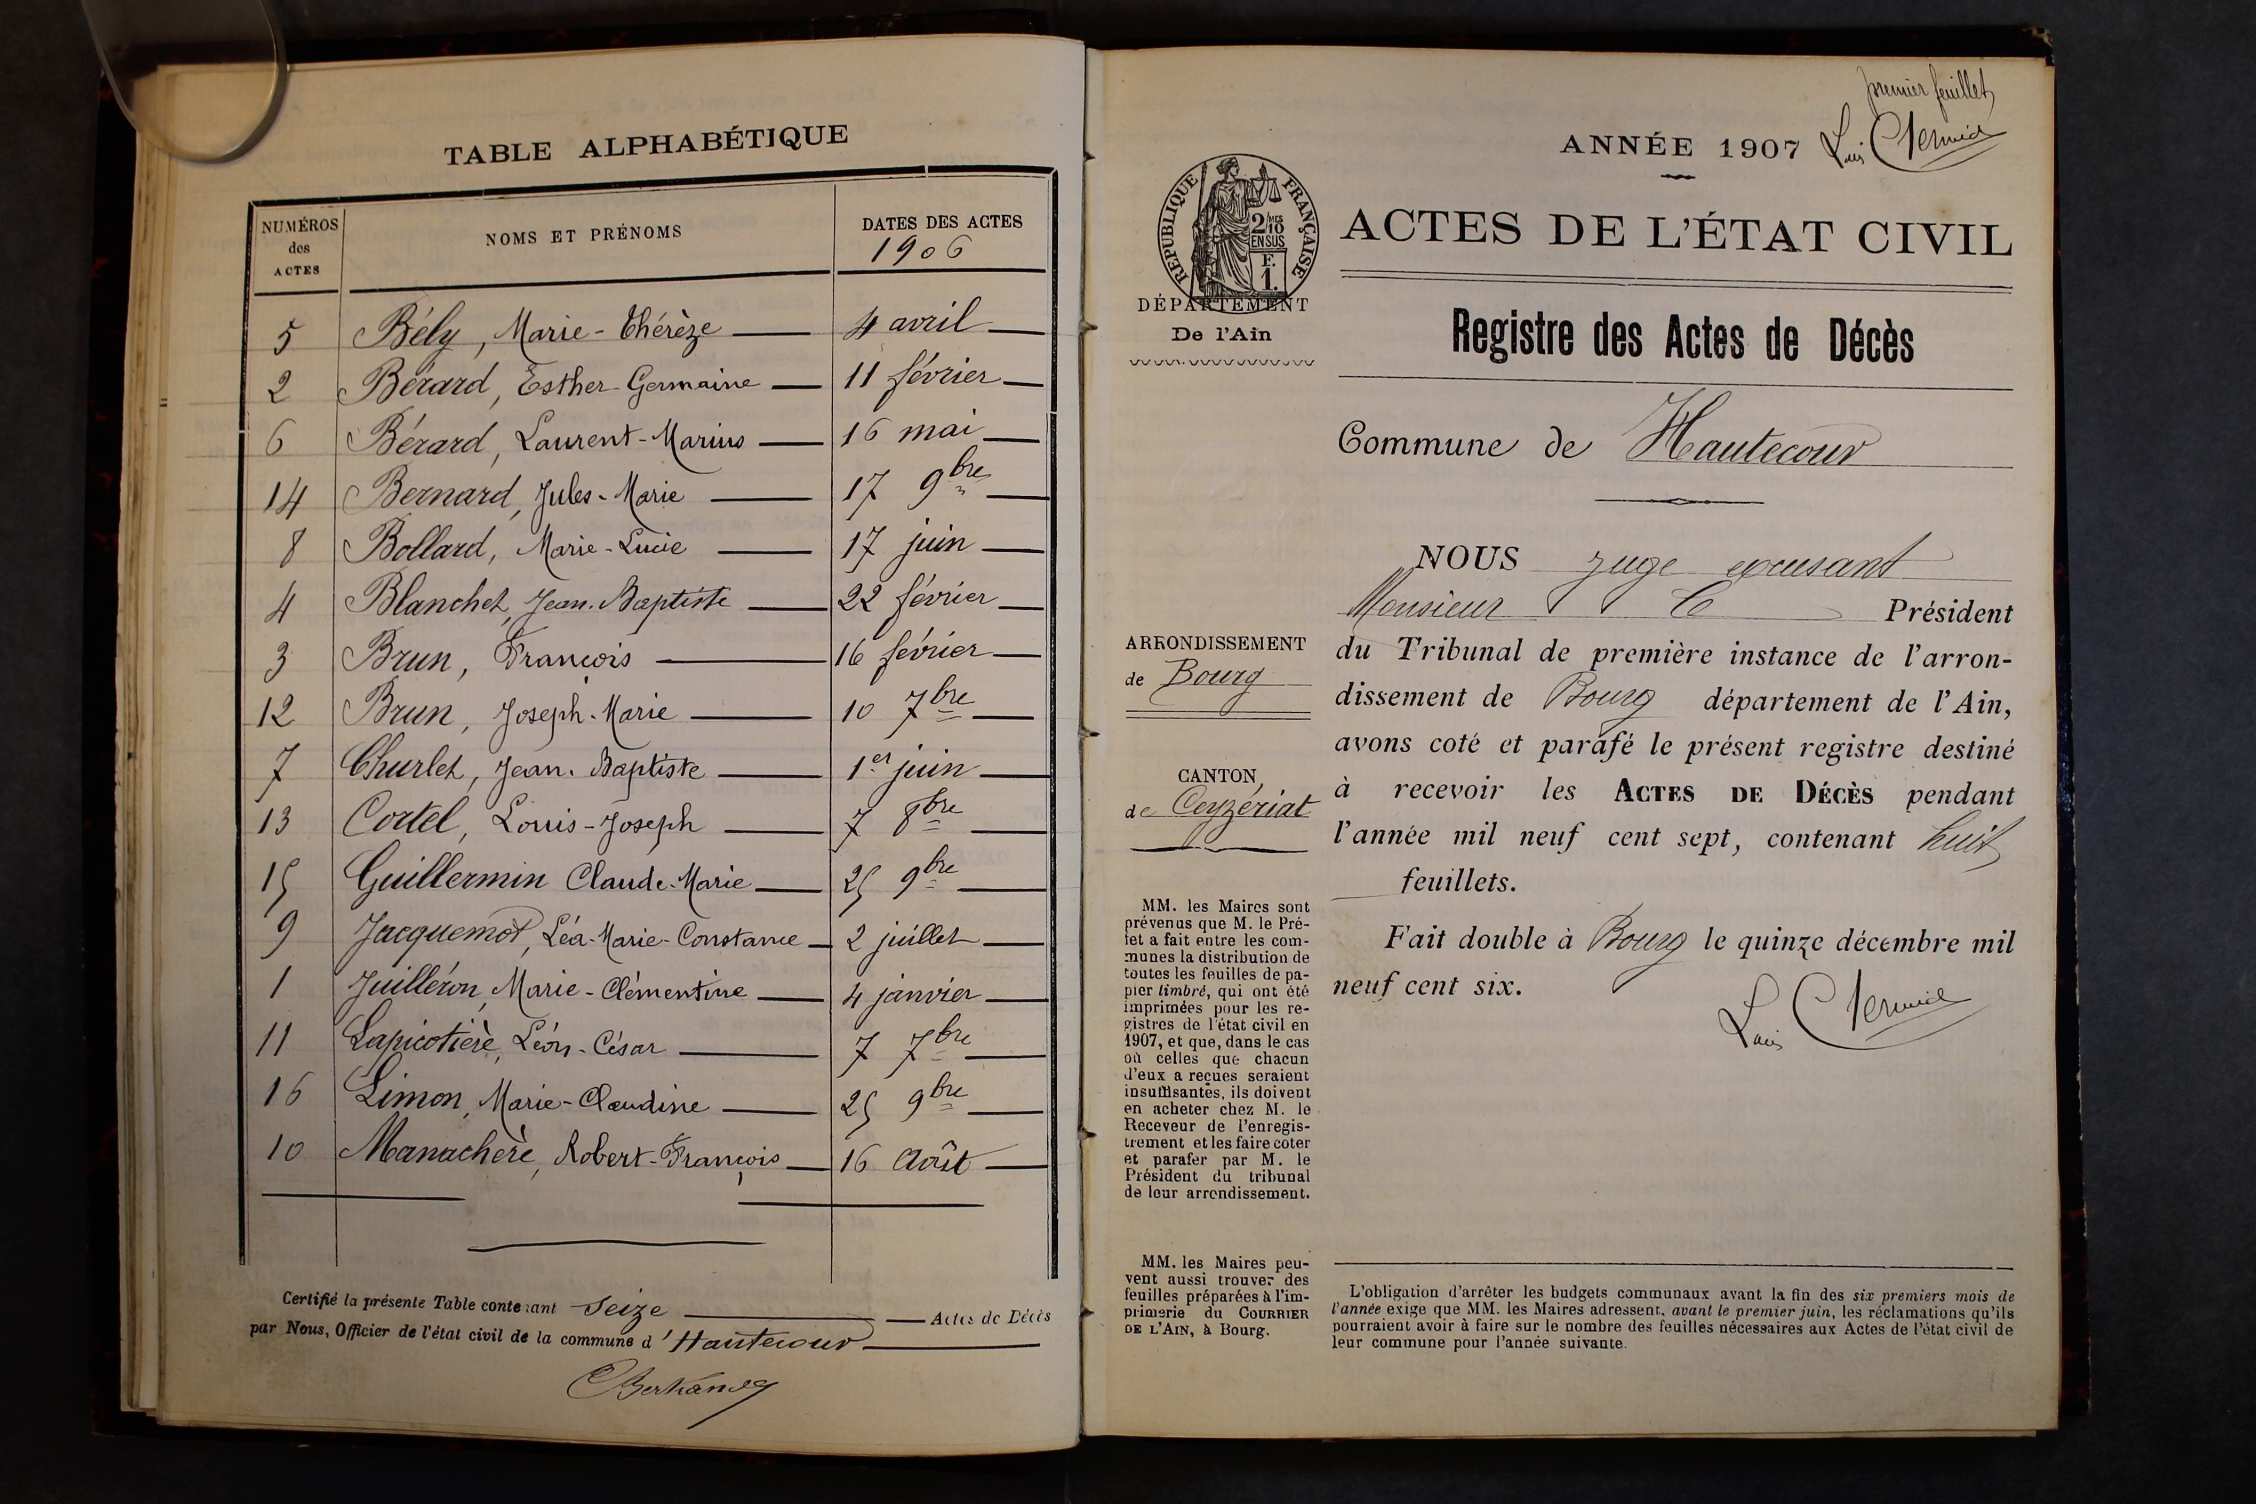 TABLE ALPHABÉTIQUE
NUMÉROS des ACTES
NOMS ET PRÉNOMS
DATES DES ACTES
1906
5 Bély, Marie-Thérèze 4 avril
2 Bérard, Esther-Germaine 11 février
6 Bérard, Laurent-Marius 16 mai
14 Bernard, Jules-Marie 17 9bre
8 Bollard, Marie-Lucie 17 juin
4 Blanchet, Jean-Baptiste 22 février
3 Brun, François 16 février
12 Brun, Joseph-Marie 10 7bre
7 Churlet, Jean-Baptiste 1er juin
13 Cortel, Louis-Joseph 7 8bre
15 Guillermin Claude-Marie 25 9bre
9 Jacquemot, Léa-Marie-Constance 2 juillet
1 Juilléron, Marie-Clémentine 4 janvier
11 Lapicotière, Léon-César 7 7bre
16 Limon, Marie-Claudine 25 9bre
10 Manachère, Robert-François 16 Août
Certifié la présente Table contenant Seize Actes de Décès
par Nous, Officier de l'état civil de la commune d'Hautecour
premier feuillet
ANNÉE 1907
RÉPUBLIQUE FRANÇAISE
2/10 MES
EN SUS
F.
1.
DÉPARTEMENT
De l'Ain
ACTES DE L'ÉTAT CIVIL
Registre des Actes de Décès
Commune de Hautecour
NOUS juge excusant
Monsieur le Président
du Tribunal de première instance de l'arron-
dissement de Bourg département de l'Ain,
avons coté et parafé le présent registre destiné
à recevoir les ACTES DE DÉCÈS pendant
l'année mil neuf cent sept, contenant huit
feuillets.
Fait double à Bourg le quinze décembre mil
neuf cent six.
ARRONDISSEMENT
de Bourg
CANTON
de Ceyzériat
MM. les Maires sont
prévenus que M. le Pré-
fet a fait entre les com-
munes la distribution de
toutes les feuilles de pa-
pier timbré, qui ont été
imprimées pour les re-
gistres de l'état civil en
1907, et que, dans le cas
où celles que chacun
d'eux a reçues seraient
insuffisantes, ils doivent
en acheter chez M. le
Receveur de l'enregis-
trement et les faire coter
et parafer par M. le
Président du tribunal
de leur arrondissement.
MM. les Maires peu-
vent aussi trouver des
feuilles préparées à l'im-
primerie du COURRIER
DE L'AIN, à Bourg.
L'obligation d'arrêter les budgets communaux avant la fin des six premiers mois de
l'année exige que MM. les Maires adressent, avant le premier juin, les réclamations qu'ils
pourraient avoir à faire sur le nombre des feuilles nécessaires aux Actes de l'état civil de
leur commune pour l'année suivante.